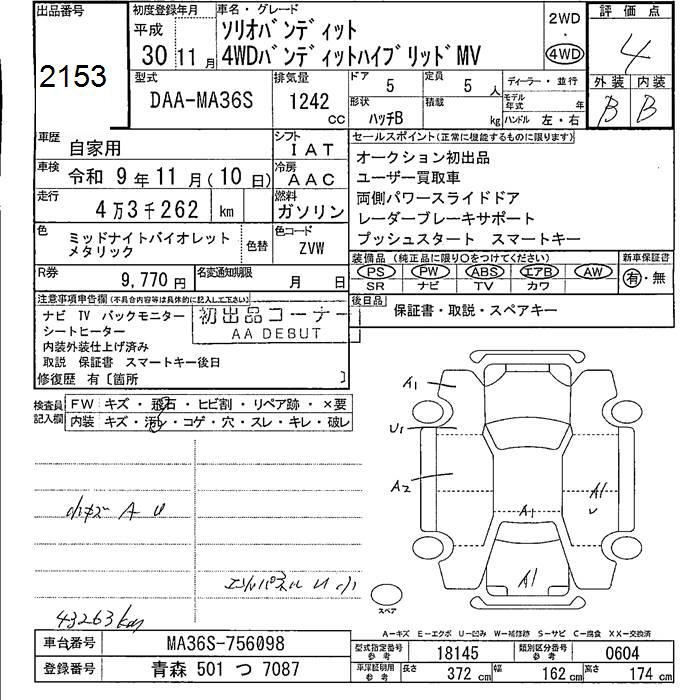 出品番号
2153
初度登録年月
平成
30 11月
車名・グレード
ソリオバンディット
4WDバンディットハイブリッドMV
2WD
・
4WD
評価点
4
外装 内装
B B
型式
DAA-MA36S
排気量
1242 cc
ドア 5
定員 5 人
形状 ハッチB
積載 kg
ディーラー・並行
モデル年式 年
ハンドル 左・右
車歴 自家用
シフト IAT
車検 令和 9年 11月(10日)
冷房 AAC
走行 4万3千262 km
燃料 ガソリン
色 ミッドナイトバイオレットメタリック
色替
色コード ZVW
R券 9,770円
名変通知期限 月 日
セールスポイント(正常に機能するものに限ります)
オークション初出品
ユーザー買取車
両側パワースライドドア
レーダーブレーキサポート
プッシュスタート スマートキー
装備品 (純正品に限り○をつけてください)
PS PW ABS エアB AW
SR ナビ TV カワ
新車保証書
有・無
後日品
保証書・取説・スペアキー
注意事項申告欄(不具合内容等は具体的に記入して下さい)
ナビ TV バックモニター
シートヒーター
内装外装仕上げ済み
取説 保証書 スマートキー後日
修復歴 有〔箇所 〕
初出品コーナー
AA DEBUT
検査員記入欄
FW キズ・飛石・ヒビ割・リペア跡・×要
内装 キズ・汚レ・コゲ・穴・スレ・キレ・破レ
小キズ A U
エンドパネル U 小
43263km
A1
U1
A2
A1
A1
A1
スペア
A-キズ E-エクボ U-凹み W-補修跡 S-サビ C-腐食 XX-交換済
車台番号 MA36S-756098
登録番号 青森 501 つ 7087
型式指定番号 参考 18145
類別区分番号 参考 0604
平深証明用 参考 長さ 372 cm 幅 162 cm 高さ 174 cm